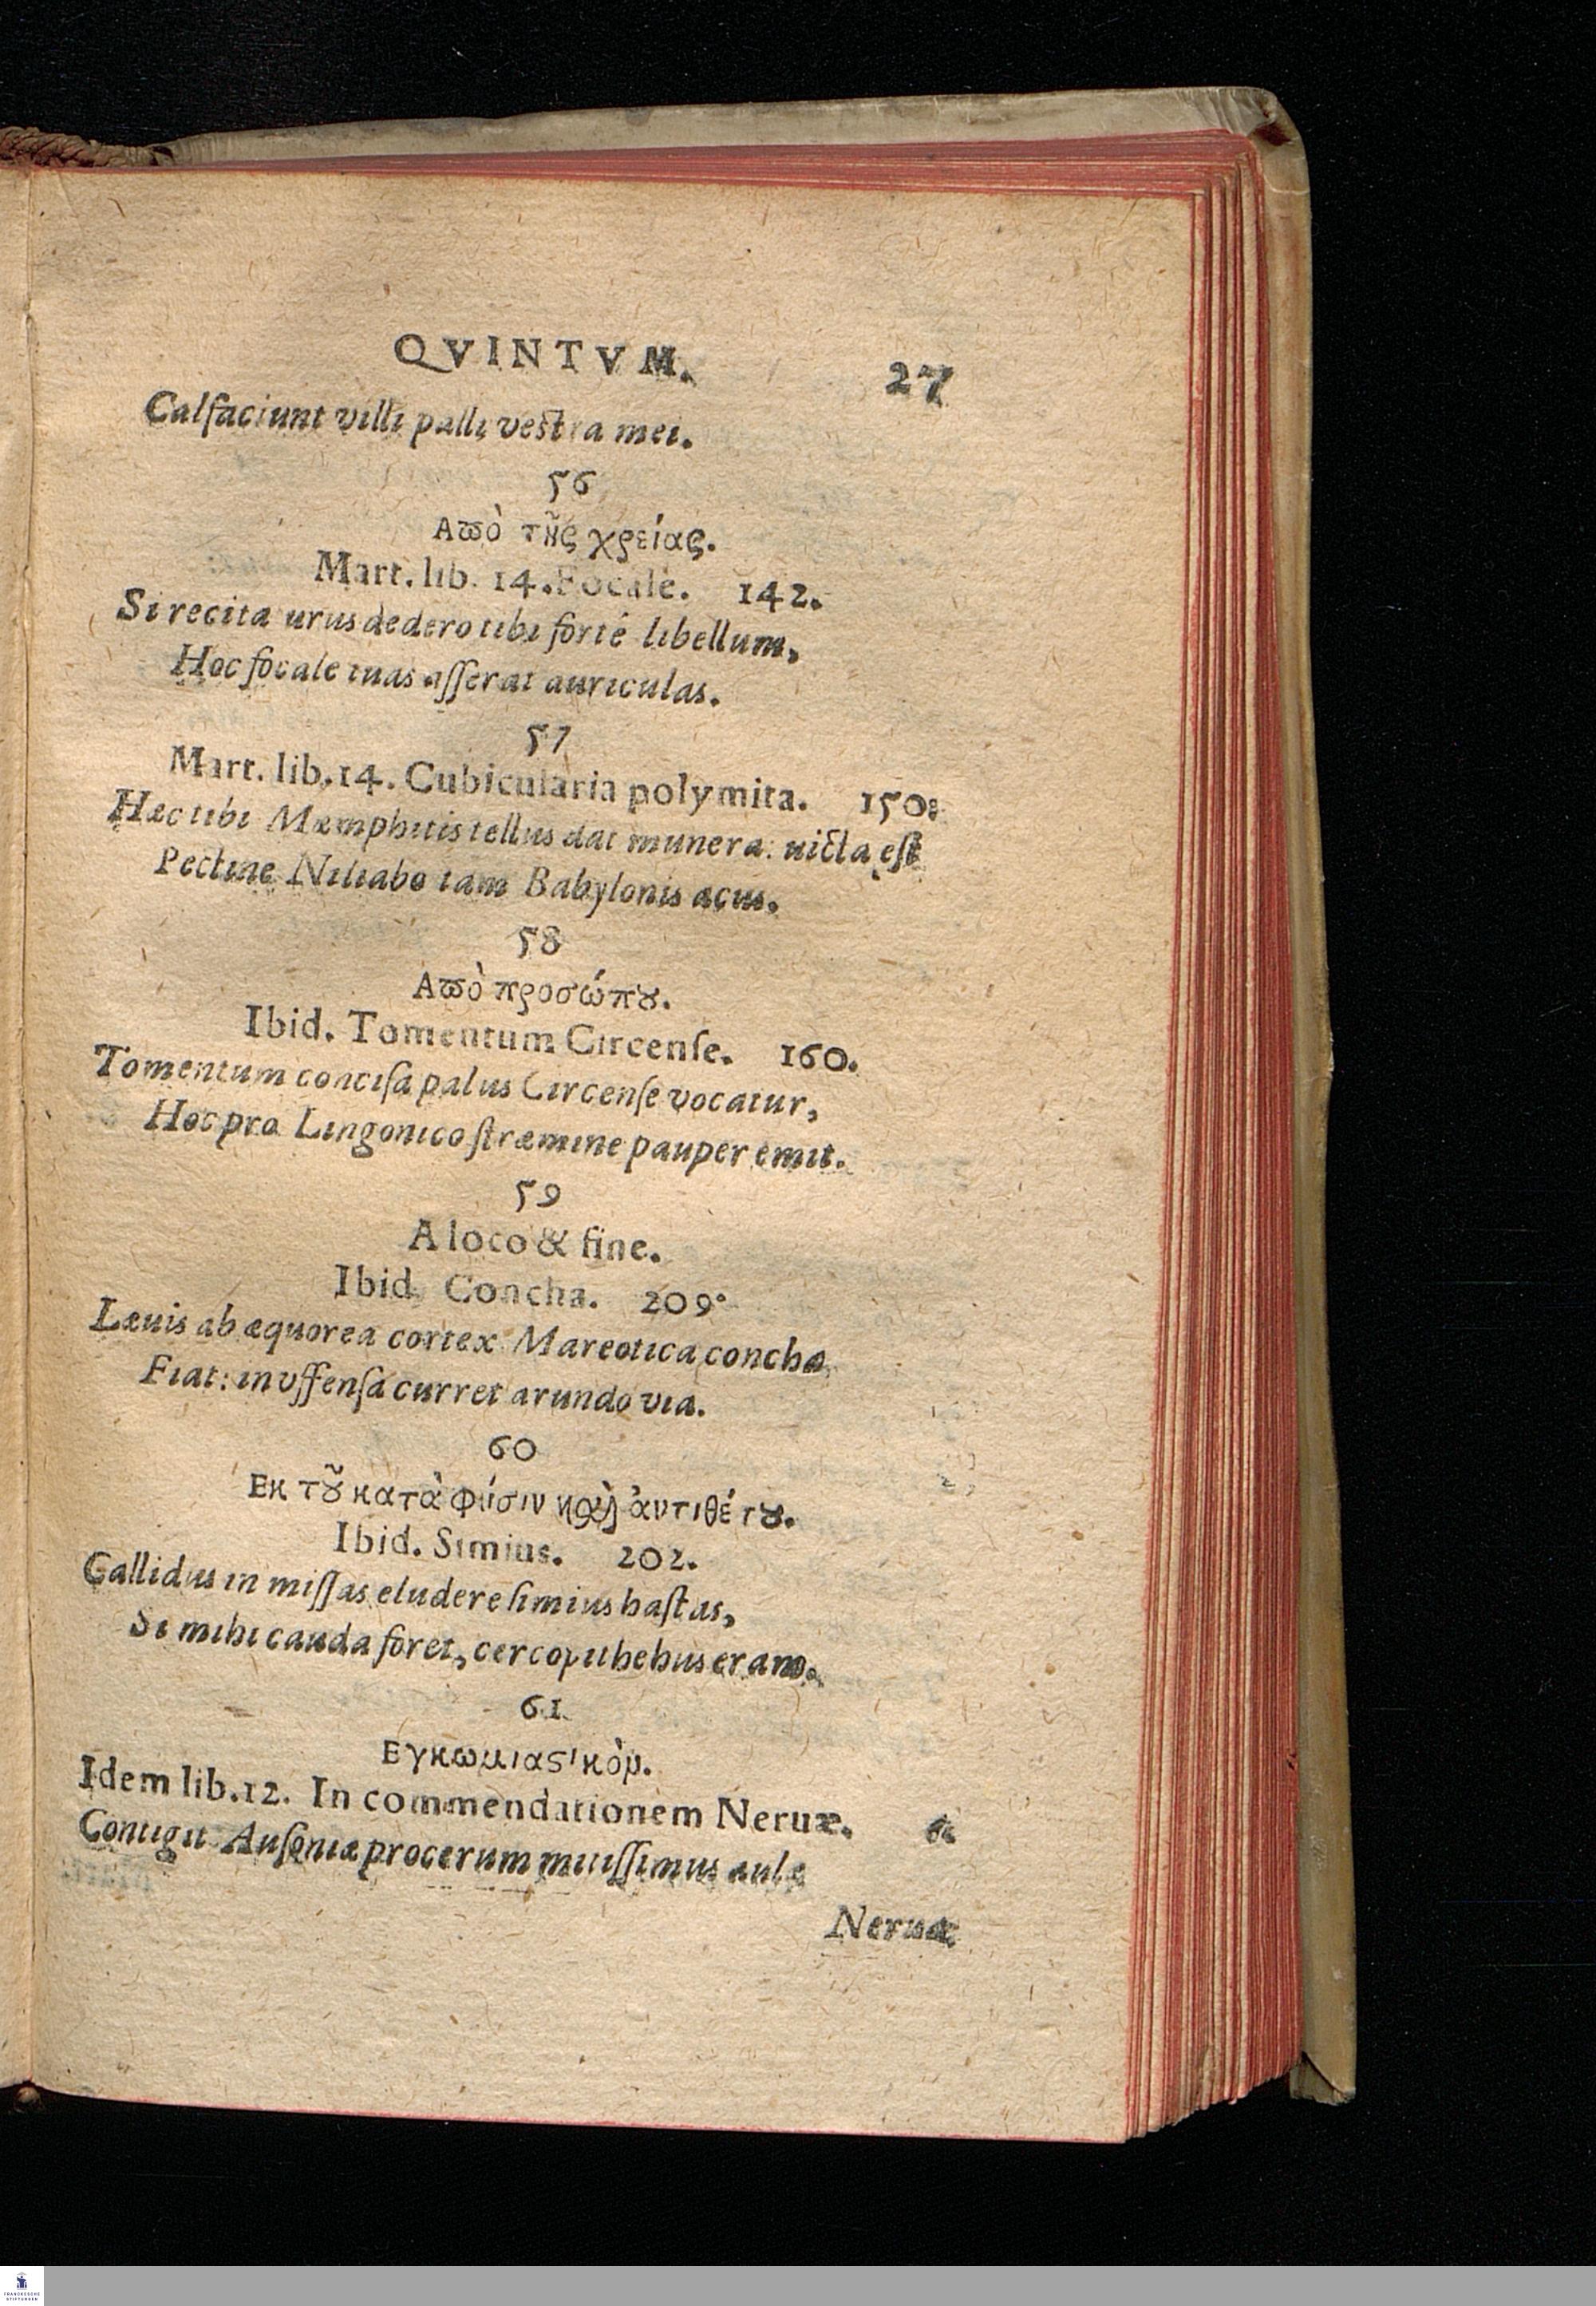 QVINTVM. 27
Calfaciunt villi palli vestra mei.
56
Απὸ τῆς χρείας.
Mart. lib. 14. Focale. 142.
Si recitaturus dedero tibi fortè libellum,
Hoc focale tuas asserat auriculas.
57
Mart. lib. 14. Cubicularia polymita. 150.
Hæc tibi Mæmphitis tellus dat munera: uicta est
Pectine Niliabo iam Babylonis acus.
58
Απὸ προσώπου.
Ibid. Tomentum Circense. 160.
Tomentum concisa palus Circense vocatur,
Hoc pro Lingonico stræmine pauper emit.
59
A loco & fine.
Ibid. Concha. 209.
Læuis ab æquorea cortex Mareotica concha
Fiat: inoffensa curret arundo via.
60
Εκ τοῦ κατὰ φύσιν καὶ ἀντιθέτου.
Ibid. Simius. 202.
Callidus in missas eludere simius hastas,
Si mihi cauda foret, cercopithehus eram.
61
Εγκωμιαστικὸν.
Idem lib. 12. In commendationem Neruæ. 6.
Contigit Ausoniæ procerum mitissimus aulæ
Neruæ
FRANCKESCHE
STIFTUNGEN